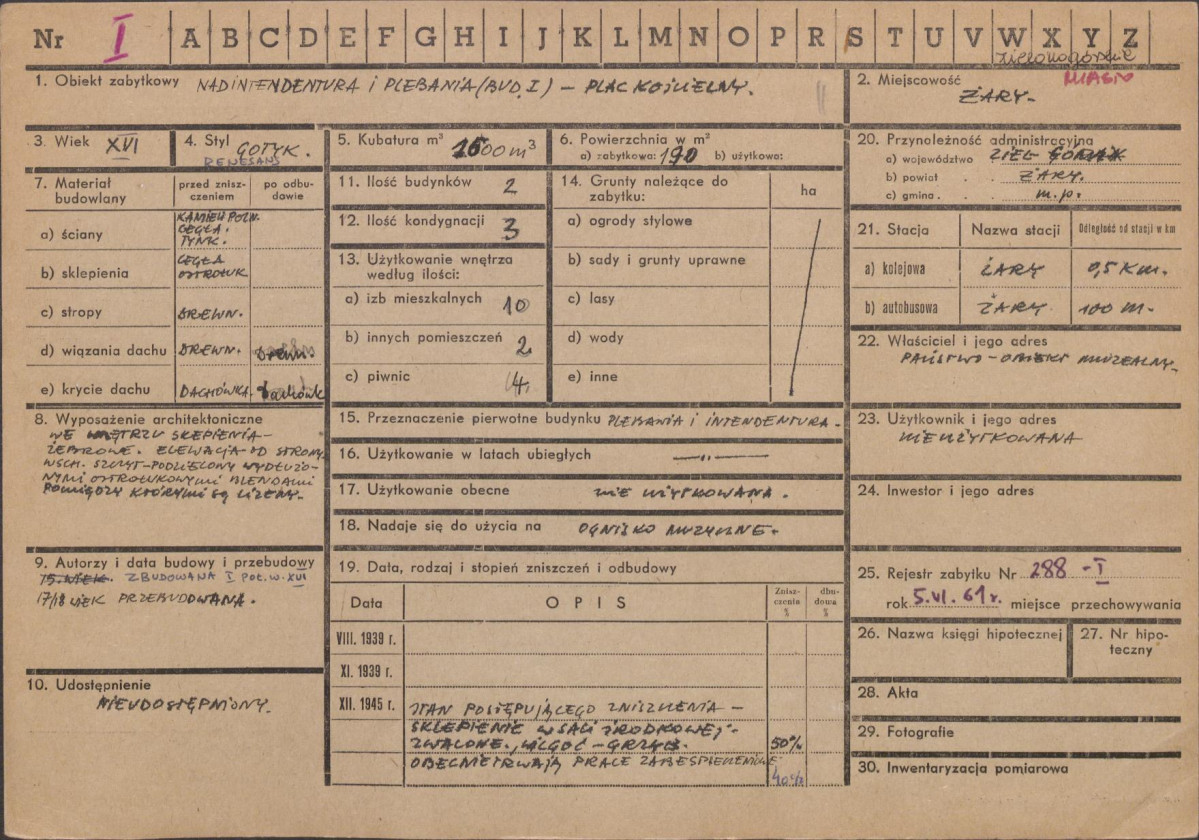 Nr I A B C D E F G H I J K L M N O P R S T U V W X Y Z
zielonogórskie
1. Obiekt zabytkowy NADINTENDENTURA i PLEBANIA (BUD. I) – PLAC KOŚCIELNY.
2. Miejscowość MIASTO
ŻARY.
3. Wiek XVI
4. Styl GOTYK.
RENESANS
5. Kubatura m³ 1500 m³
6. Powierzchnia w m²
a) zabytkowa: 190 b) użytkowa:
20. Przynależność administracyjna
a) województwo ZIEL. GÓRSKIE
b) powiat ŻARY.
c) gmina m.p.
7. Materiał budowlany
przed zniszczeniem
po odbudowie
a) ściany KAMIEŃ POLN.
CEGŁA.
TYNK.
b) sklepienia CEGŁA
OSTROŁUK
c) stropy DREWN.
d) wiązania dachu DREWN. Drewn.
e) krycie dachu DACHÓWKA. Dachówk
11. Ilość budynków 2
12. Ilość kondygnacji 3
13. Użytkowanie wnętrza
według ilości:
a) izb mieszkalnych 10
b) innych pomieszczeń 2
c) piwnic 4
14. Grunty należące do
zabytku:
ha
a) ogrody stylowe
b) sady i grunty uprawne
c) lasy
d) wody
e) inne
21. Stacja Nazwa stacji Odległość od stacji w km
a) kolejowa ŻARY 0,5 KM.
b) autobusowa ŻARY 100 M.
22. Właściciel i jego adres
PAŃSTWO – OBIEKT MUZEALNY.
8. Wyposażenie architektoniczne
WE WNĘTRZU SKLEPIENIA –
ŻEBROWE. ELEWACJA OD STRONY
WSCH. SZCZYT – PODZIELONY WYDŁUŻO-
NYMI OSTROŁUKOWYMI BLENDAMI
POMIĘDZY KTÓRYMI SĄ LIZENY.
15. Przeznaczenie pierwotne budynku PLEBANIA i INTENDENTURA.
16. Użytkowanie w latach ubiegłych —"—
17. Użytkowanie obecne NIE UŻYTKOWANA.
18. Nadaje się do użycia na OGNISKO MUZYCZNE.
23. Użytkownik i jego adres
NIEUŻYTKOWANA
24. Inwestor i jego adres
9. Autorzy i data budowy i przebudowy
15. WIEK. ZBUDOWANA I POŁ. W. XVI
17/18 WIEK PRZEBUDOWANA.
10. Udostępnienie
NIEUDOSTĘPNIONY.
19. Data, rodzaj i stopień zniszczeń i odbudowy
Data OPIS Zniszczenia % dbudowa %
VIII. 1939 r.
XI. 1939 r.
XII. 1945 r. STAN POSTĘPUJĄCEGO ZNISZCZENIA –
SKLEPIENIE W SALI ŚRODKOWEJ –
ZWALONE., WILGOĆ – GRZYB. 50%
OBECNIE TRWAJĄ PRACE ZABESPIECZENIOWE
40%
25. Rejestr zabytku Nr 288 – I
rok 5.VI.61 r. miejsce przechowywania
26. Nazwa księgi hipotecznej
27. Nr hipoteczny
28. Akta
29. Fotografie
30. Inwentaryzacja pomiarowa